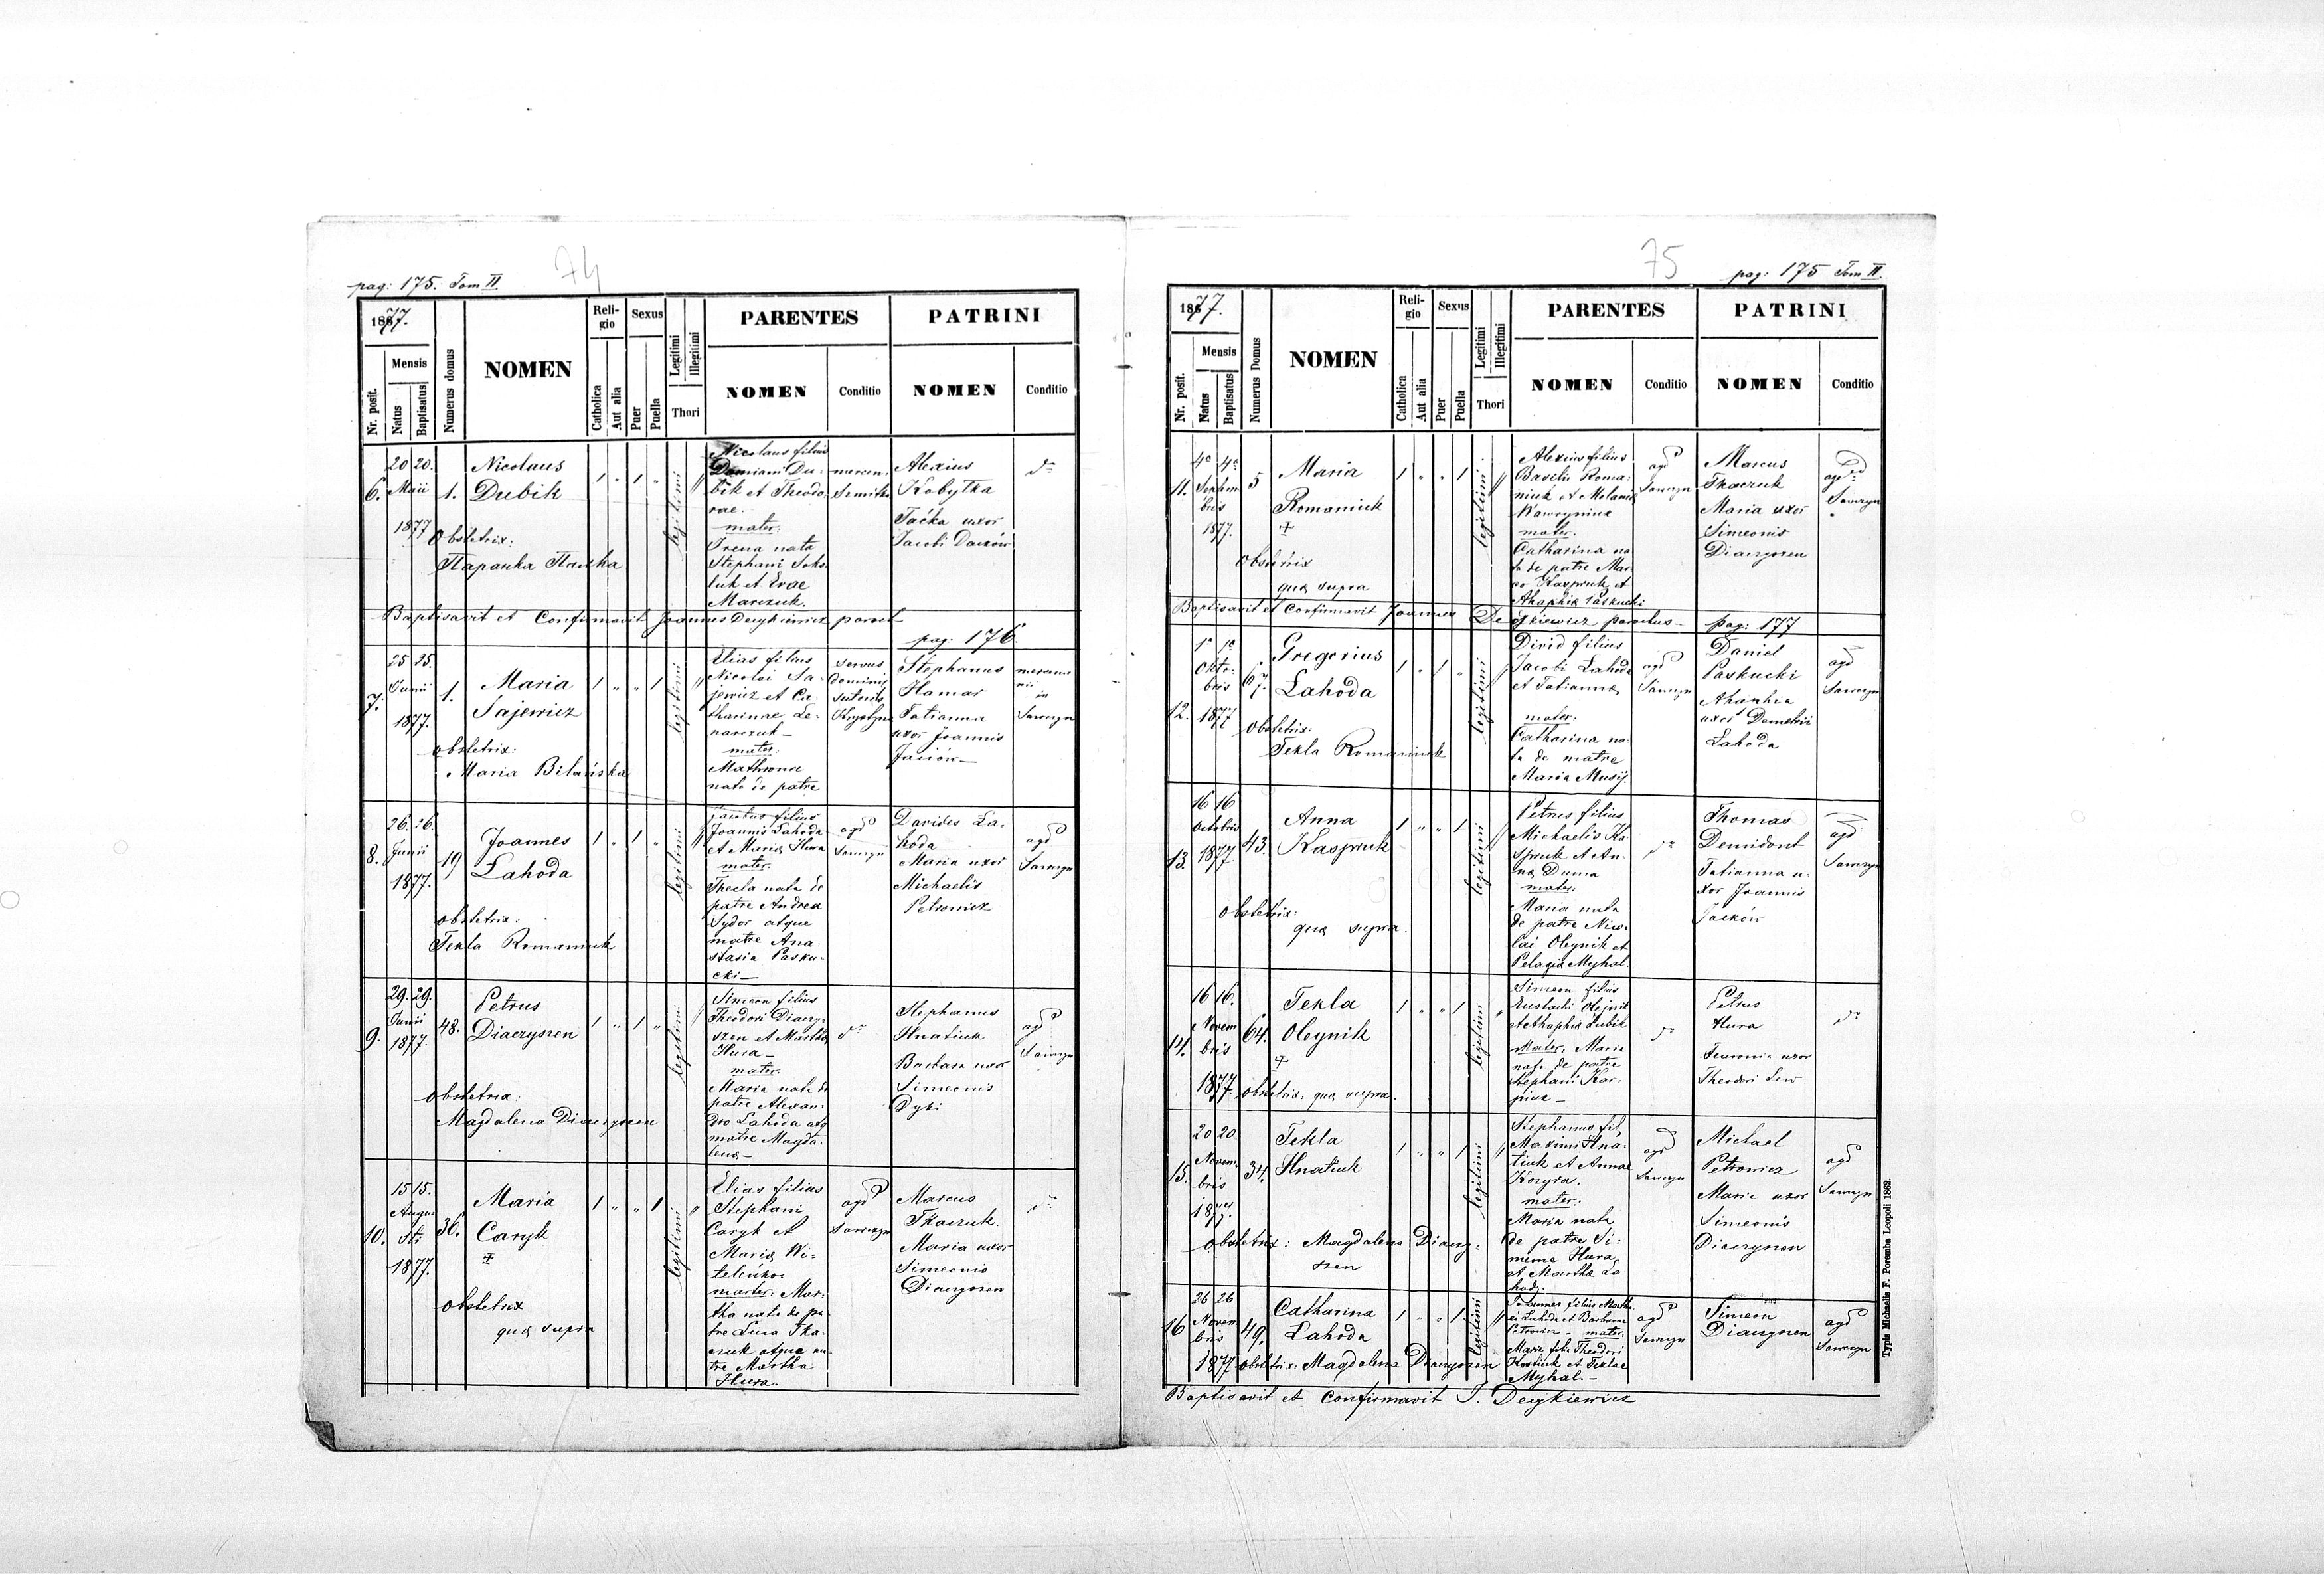 pag: 175. Tom II.
74
1877.
Nr. posit.
Mensis
Natus
Baptisatus
Numerus domus
NOMEN
Religio
Catholica
Aut alia
Sexus
Puer
Puella
Legitimi
Illegitimi
Thori
PARENTES
NOMEN
Conditio
PATRINI
NOMEN
Conditio
6.
20 20.
Maii
1877
1.
Nicolaus
Dubik
obstetrix:
legitimi
Nicolaus filius
Damiani Du-
bik et Theodo-
rae.
mater:
Irena nata
Stephani
luk et Evae
Marczuk.
Alexius
Kobytka
uxor
Jacobi
Baptisavit et Confirmavit Joannes Deykiewicz
pag. 176.
7.
25 25.
Junii
1877.
1.
Maria
Sajewicz
obstetrix:
Maria Bilańska
legitimi
Elias filius
Nicolai Sa-
jewicz et Ca-
tharinae Le-
narczuk -
mater:
nata de patre
servus
Stephanus
Hamar
Tatianna
uxor Joannis
in
Sawczyn
8.
26. 26.
Junii
1877.
19
Joannes
Lahoda
obstetrix:
Tekla Romaniuk
legitimi
Jacobus filius
Joannis Lahoda
et Maria Hura
mater:
Thecla nata de
patre Andrea
Sydor atque
matre Ana-
stasia Pasku-
cki -
agr
Sawczyn
Davides La-
hoda
Maria uxor
Michaelis
Petrowicz
agr
Sawczyn
9.
29. 29.
Junii
1877.
48.
Petrus
Diaczyszen
obstetrix:
Magdalena Diaczyszen
legitimi
Simeon filius
Theodori Diaczy-
szen et Martha
Hura -
mater:
Maria nata de
patre Alexan-
dro Lahoda atq
matre Magda-
lena -
Stephanus
Hnatiuk
Barbara uxor
Simeonis
Dyki
agr
Sawczyn
10.
15 15.
Augu-
sti
1877.
36.
Maria
Caryk
obstetrix
qua supra
legitimi
Elias filius
Stephani
Caryk et
Maria Wi-
mater: Mar-
tha nata de pa-
tre Luca Tka-
czuk atque ma-
tre Martha
Hura.
agr
Sawczyn
Marcus
Tkaczuk.
Maria uxor
Simeonis
Diaczyszen
75
pag: 175 Tom II.
1877.
Nr. posit.
Mensis
Natus
Baptisatus
Numerus Domus
NOMEN
Religio
Catholica
Aut alia
Sexus
Puer
Puella
Legitimi
Illegitimi
Thori
PARENTES
NOMEN
Conditio
PATRINI
NOMEN
Conditio
11.
4a 4a
Septem-
bris
1877.
5
Maria
Romaniuk
obstetrix
qua supra
legitimi
Alexius filius
Basilii Roma-
niuk et Melania
Wawryniuk
mater:
Catharina na-
ta de patre Mar-
co Kaspruk et
Ahaphia Paskucki
agr
Sawczyn
Marcus
Tkaczuk
Maria uxor
Simeonis
Diaczyszen
Sawczyn
Baptisavit et Confirmavit Joannes Deykiewicz parochus - pag: 177
12.
1a 1a
Octo-
bris
1877
67.
Gregorius
Lahoda
obstetrix:
Tekla Romaniuk
legitimi
David filius
Jacobi Lahoda
et Tatianna
mater:
Catharina na-
ta de matre
Maria Musij.
agr
Sawczyn
Daniel
Paskucki
Ahaphia
uxor Demetrii
Lahoda
agr
Sawczyn
13.
16 16
Octobris
1877.
43.
Anna
Kaspruk
obstetrix:
qua supra.
legitimi
Petrus filius
Michaelis Ka-
spruk et An-
na Duma
mater:
Maria nata
de patre Nico-
lai Oleynik et
Pelagia Myhal.
Thomas
Demidont
Tatianna u-
xor Joannis
agr
Sawczyn
14.
16 16.
Novem
bris
1877.
64.
Tekla
Oleynik
obstetrix: qua supra.
legitimi
Simeon filius
Eustachi Olejnik
et Ahaphia Dubik
Mater: Maria
nata de patre
Stephani Kar-
Petrus
Hura
uxor
Theodori Lew
15.
20 20
Novem-
bris
1877.
34.
Tekla
Hnatiuk
obstetrix: Magdalena Diaczy-
szen
legitimi
Stephanus fil.
Maximi Hna-
tiuk et Annae
Kozyra.
mater:
Maria nata
de patre Si-
meone Hura
et Martha La-
hody.
agr
Sawczyn
Michael
Petrowicz
Maria uxor
Simeonis
Diaczyszen
agr
Sawczyn
16
26 26
Novem
bris
1877.
49.
Catharina
Lahoda
obstetrix: Magdalena Diaczyszen
legitimi
Joannes filius Matth-
ei Lahoda et Barbarae
Petrowicz - mater:
Maria fil: Theodori
Kostiuk et Teklae
Myhal. -
agr
Sawczyn
Simeon
Diaczyszen
agr
Sawczyn
Baptisavit et Confirmavit J. Deykiewicz
Typis Michaelis F. Poremba Leopoli 1862.